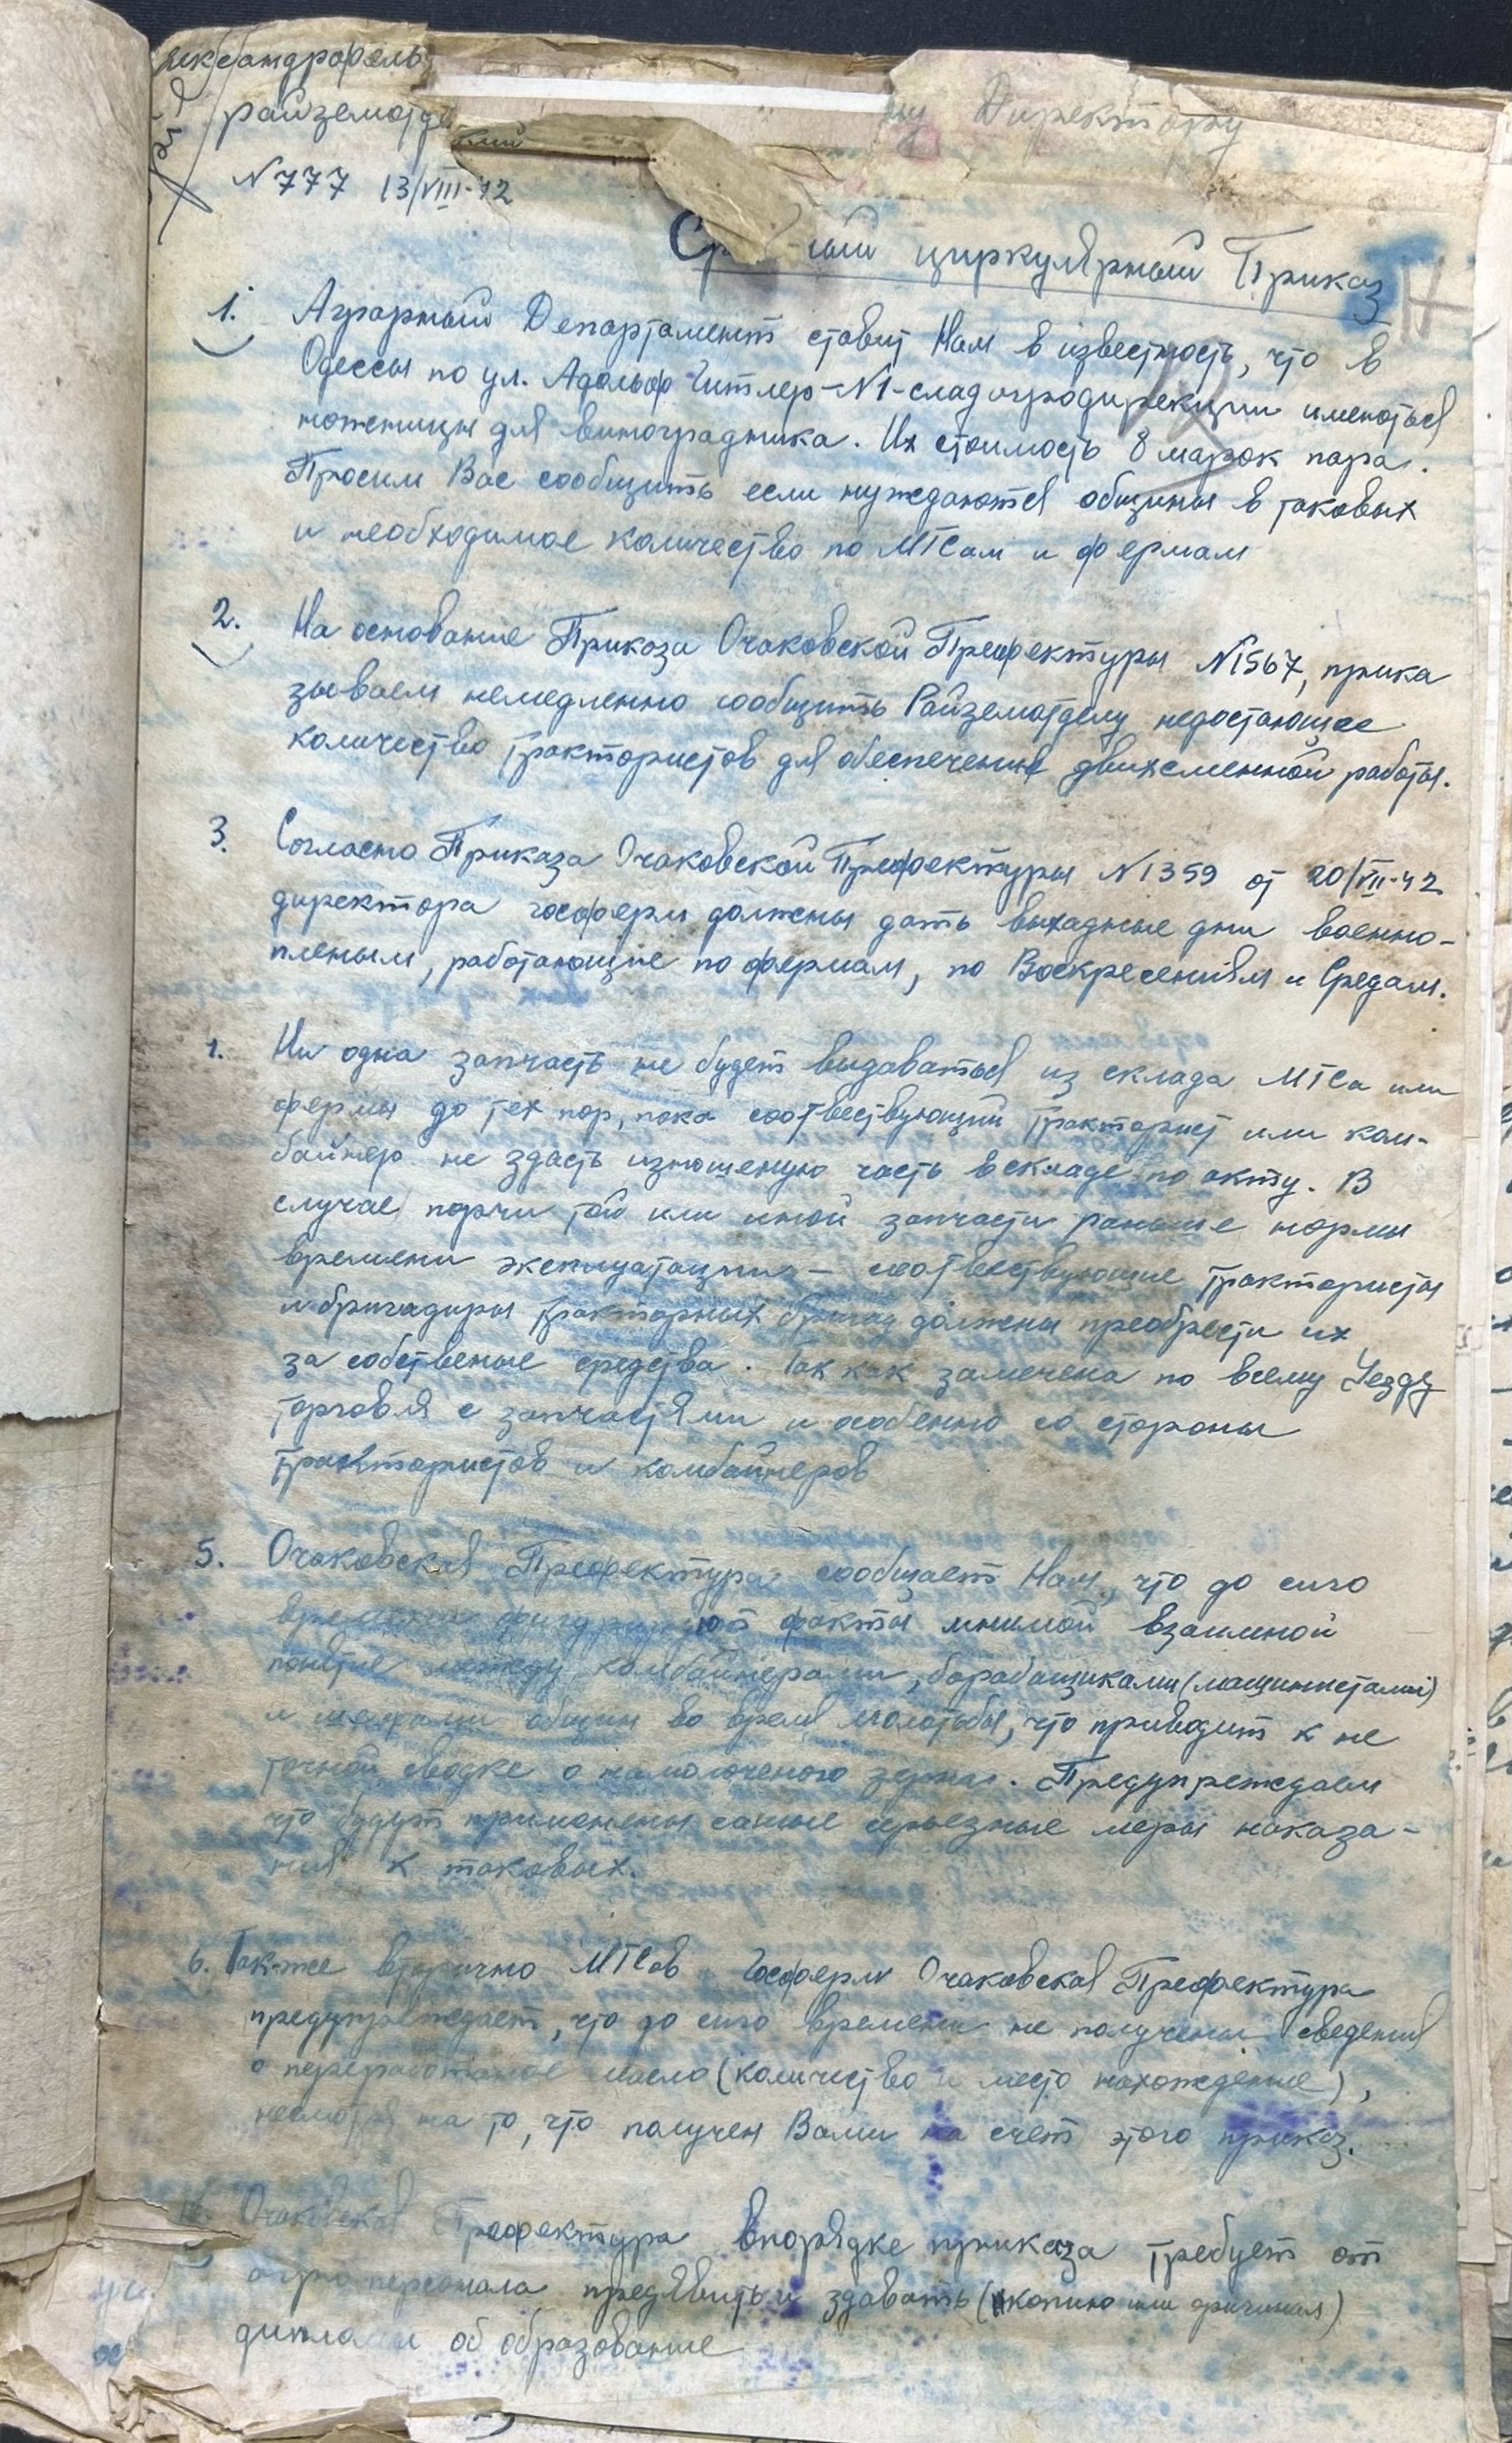 райземотде
N777 13/VIII-42
Директору
циркулярный Приказ
1. Аграрный Департамент ставит Нам в известность, что в
Одессы по ул. Адольф Гитлер-N1-склад агродирекции имеються
ноженицы для виноградника. Их стоимость 8 марок пара.
Просим Вас сообщить если нуждаются общины в таковых
и необходимое количество по МТСам и фермам
2. На основание Приказа Очаковской Префектуры N1567, прика
зываем немедленно сообщить Райземотделу недостающее
количество трактористов для обеспечения двихсменной работы.
3. Согласно Приказа Очаковской Префектуры N1359 от 20/VII-42
директора госферм должны дать выхадные дни военно-
пленым, работающие по фермам, по Воскресениям и Средам.
Ни одна запчасть не будет выдаваться из склада МТСа или
фермы до тех пор, пока соотвествующий тракторист или ком-
байнер не здасть изношеную часть в складе по акту. В
случае порчи той или иной запчасти раньше нормы
времени эксплуатации - соотвествующие трактористы
и бригадиры тракторных бригад должны преобрести их
за собственые средства. Так как замечена по всему Уезду
торговля с запчастями и особенно со стороны
трактористов и комбайнеров
5. Очаковская Префектура сообщает Нам, что до сиго
времени фигурируют факты мнимой взаимной
между комбайнерами, барабащиками (машинистами)
и общин во время молотьбы, что приводит к не
точной сводке о намолоченого зерна. Предупреждаем
что будут применены самые серьезные меры наказа-
ния к таковых.
6. Также вторично МТСов Госферм Очаковская Префектура
предупреждает, что до сиго времени не получены сведения
о переработаное масло (количество и место нахождение),
несмотря на то, что получен Вами на счет этого приказ.
Очаковская Префектура впорядке приказа требует от
агроперсонала предявить и здавать (копию или оригинал)
дипломы об образование